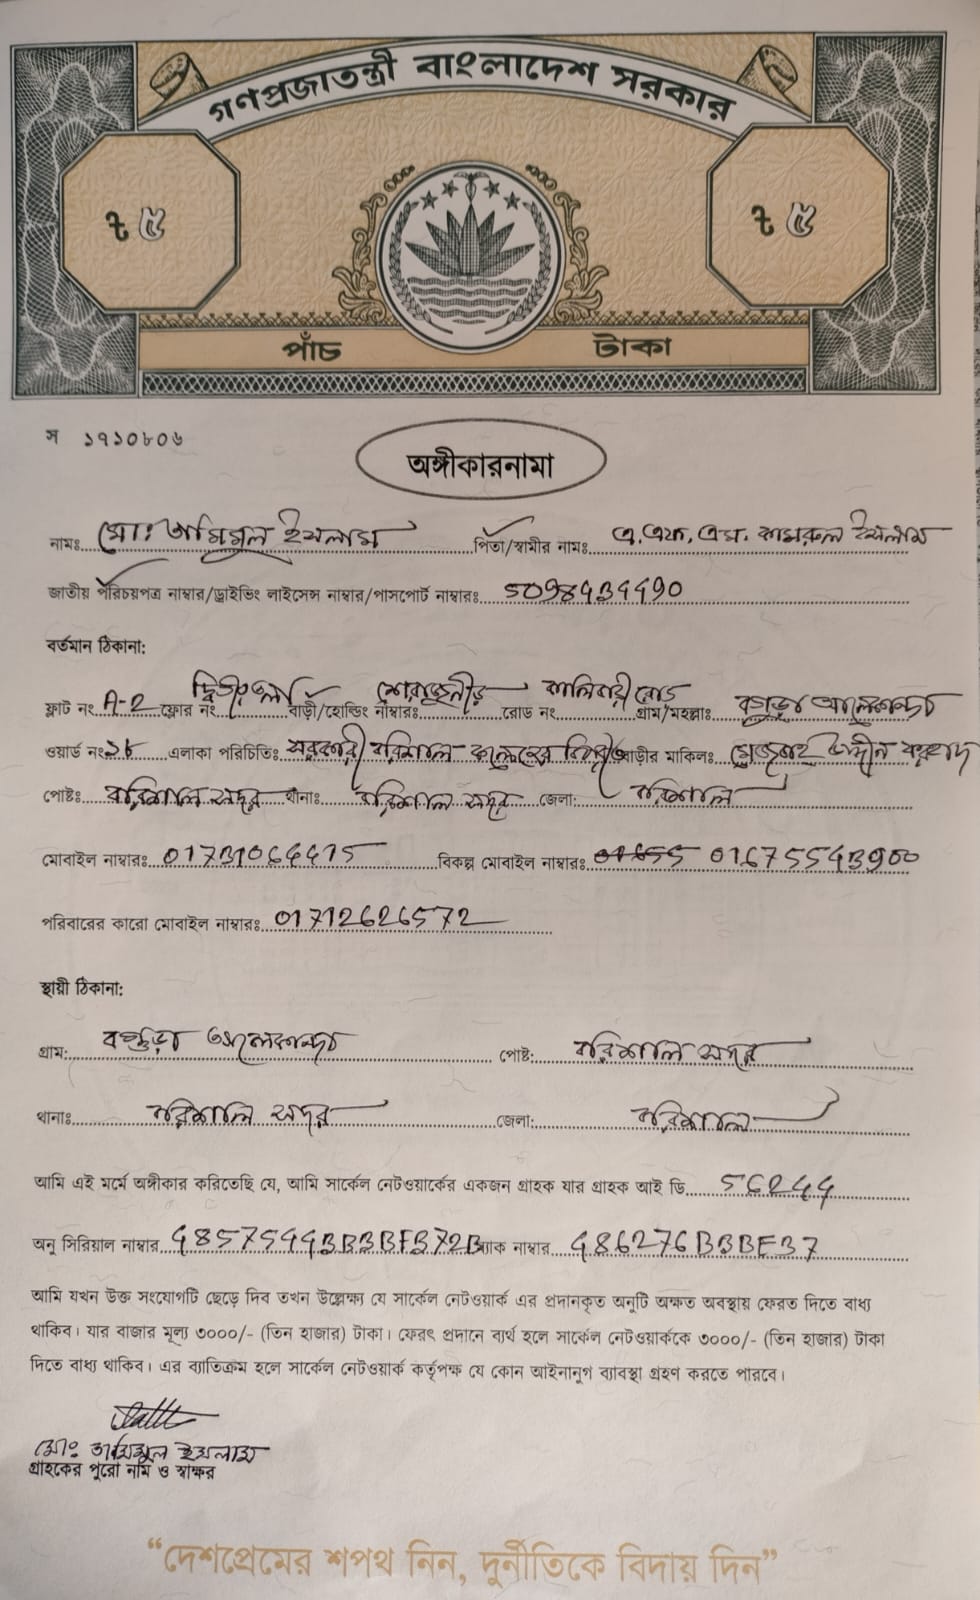 গণপ্রজাতন্ত্রী বাংলাদেশ সরকার
৳ ৫ ৳ ৫
পাঁচ টাকা
স ১৭১০৮০৬
অঙ্গীকারনামা
নামঃ মোঃ তামিমুল ইসলাম পিতা/স্বামীর নামঃ এ.এফ.এম. কামরুল ইসলাম
জাতীয় পরিচয়পত্র নাম্বার/ড্রাইভিং লাইসেন্স নাম্বার/পাসপোর্ট নাম্বারঃ
বর্তমান ঠিকানা:
ফ্লাট নং A-2 ফ্লোর নং দ্বিতীয়তলা বাড়ী/হোল্ডিং নাম্বারঃ রোড নং কালিবাড়ী রোড গ্রাম/মহল্লাঃ বগুড়া আলেকান্দা
ওয়ার্ড নং এলাকা পরিচিতিঃ সরকারী বরিশাল কলেজের বিপরীতে বাড়ীর মাকিলঃ
পোষ্টঃ বরিশাল সদর থানাঃ বরিশাল সদর জেলা: বরিশাল
মোবাইল নাম্বারঃ বিকল্প মোবাইল নাম্বারঃ
পরিবারের কারো মোবাইল নাম্বারঃ 01712626572
স্থায়ী ঠিকানা:
গ্রাম: বগুড়া আলেকান্দা পোষ্ট: বরিশাল সদর
থানাঃ বরিশাল সদর জেলা: বরিশাল
আমি এই মর্মে অঙ্গীকার করিতেছি যে, আমি সার্কেল নেটওয়ার্কের একজন গ্রাহক যার গ্রাহক আই ডি
অনু সিরিয়াল নাম্বার ম্যাক নাম্বার
আমি যখন উক্ত সংযোগটি ছেড়ে দিব তখন উল্লেক্ষ্য যে সার্কেল নেটওয়ার্ক এর প্রদানকৃত অনুটি অক্ষত অবস্থায় ফেরত দিতে বাধ্য
থাকিব। যার বাজার মূল্য ৩০০০/- (তিন হাজার) টাকা। ফেরৎ প্রদানে ব্যর্থ হলে সার্কেল নেটওয়ার্ককে ৩০০০/- (তিন হাজার) টাকা
দিতে বাধ্য থাকিব। এর ব্যাতিক্রম হলে সার্কেল নেটওয়ার্ক কর্তৃপক্ষ যে কোন আইনানুগ ব্যাবস্থা গ্রহণ করতে পারবে।
মোঃ তামিমুল ইসলাম
গ্রাহকের পুরো নাম ও স্বাক্ষর
“দেশপ্রেমের শপথ নিন, দুর্নীতিকে বিদায় দিন”